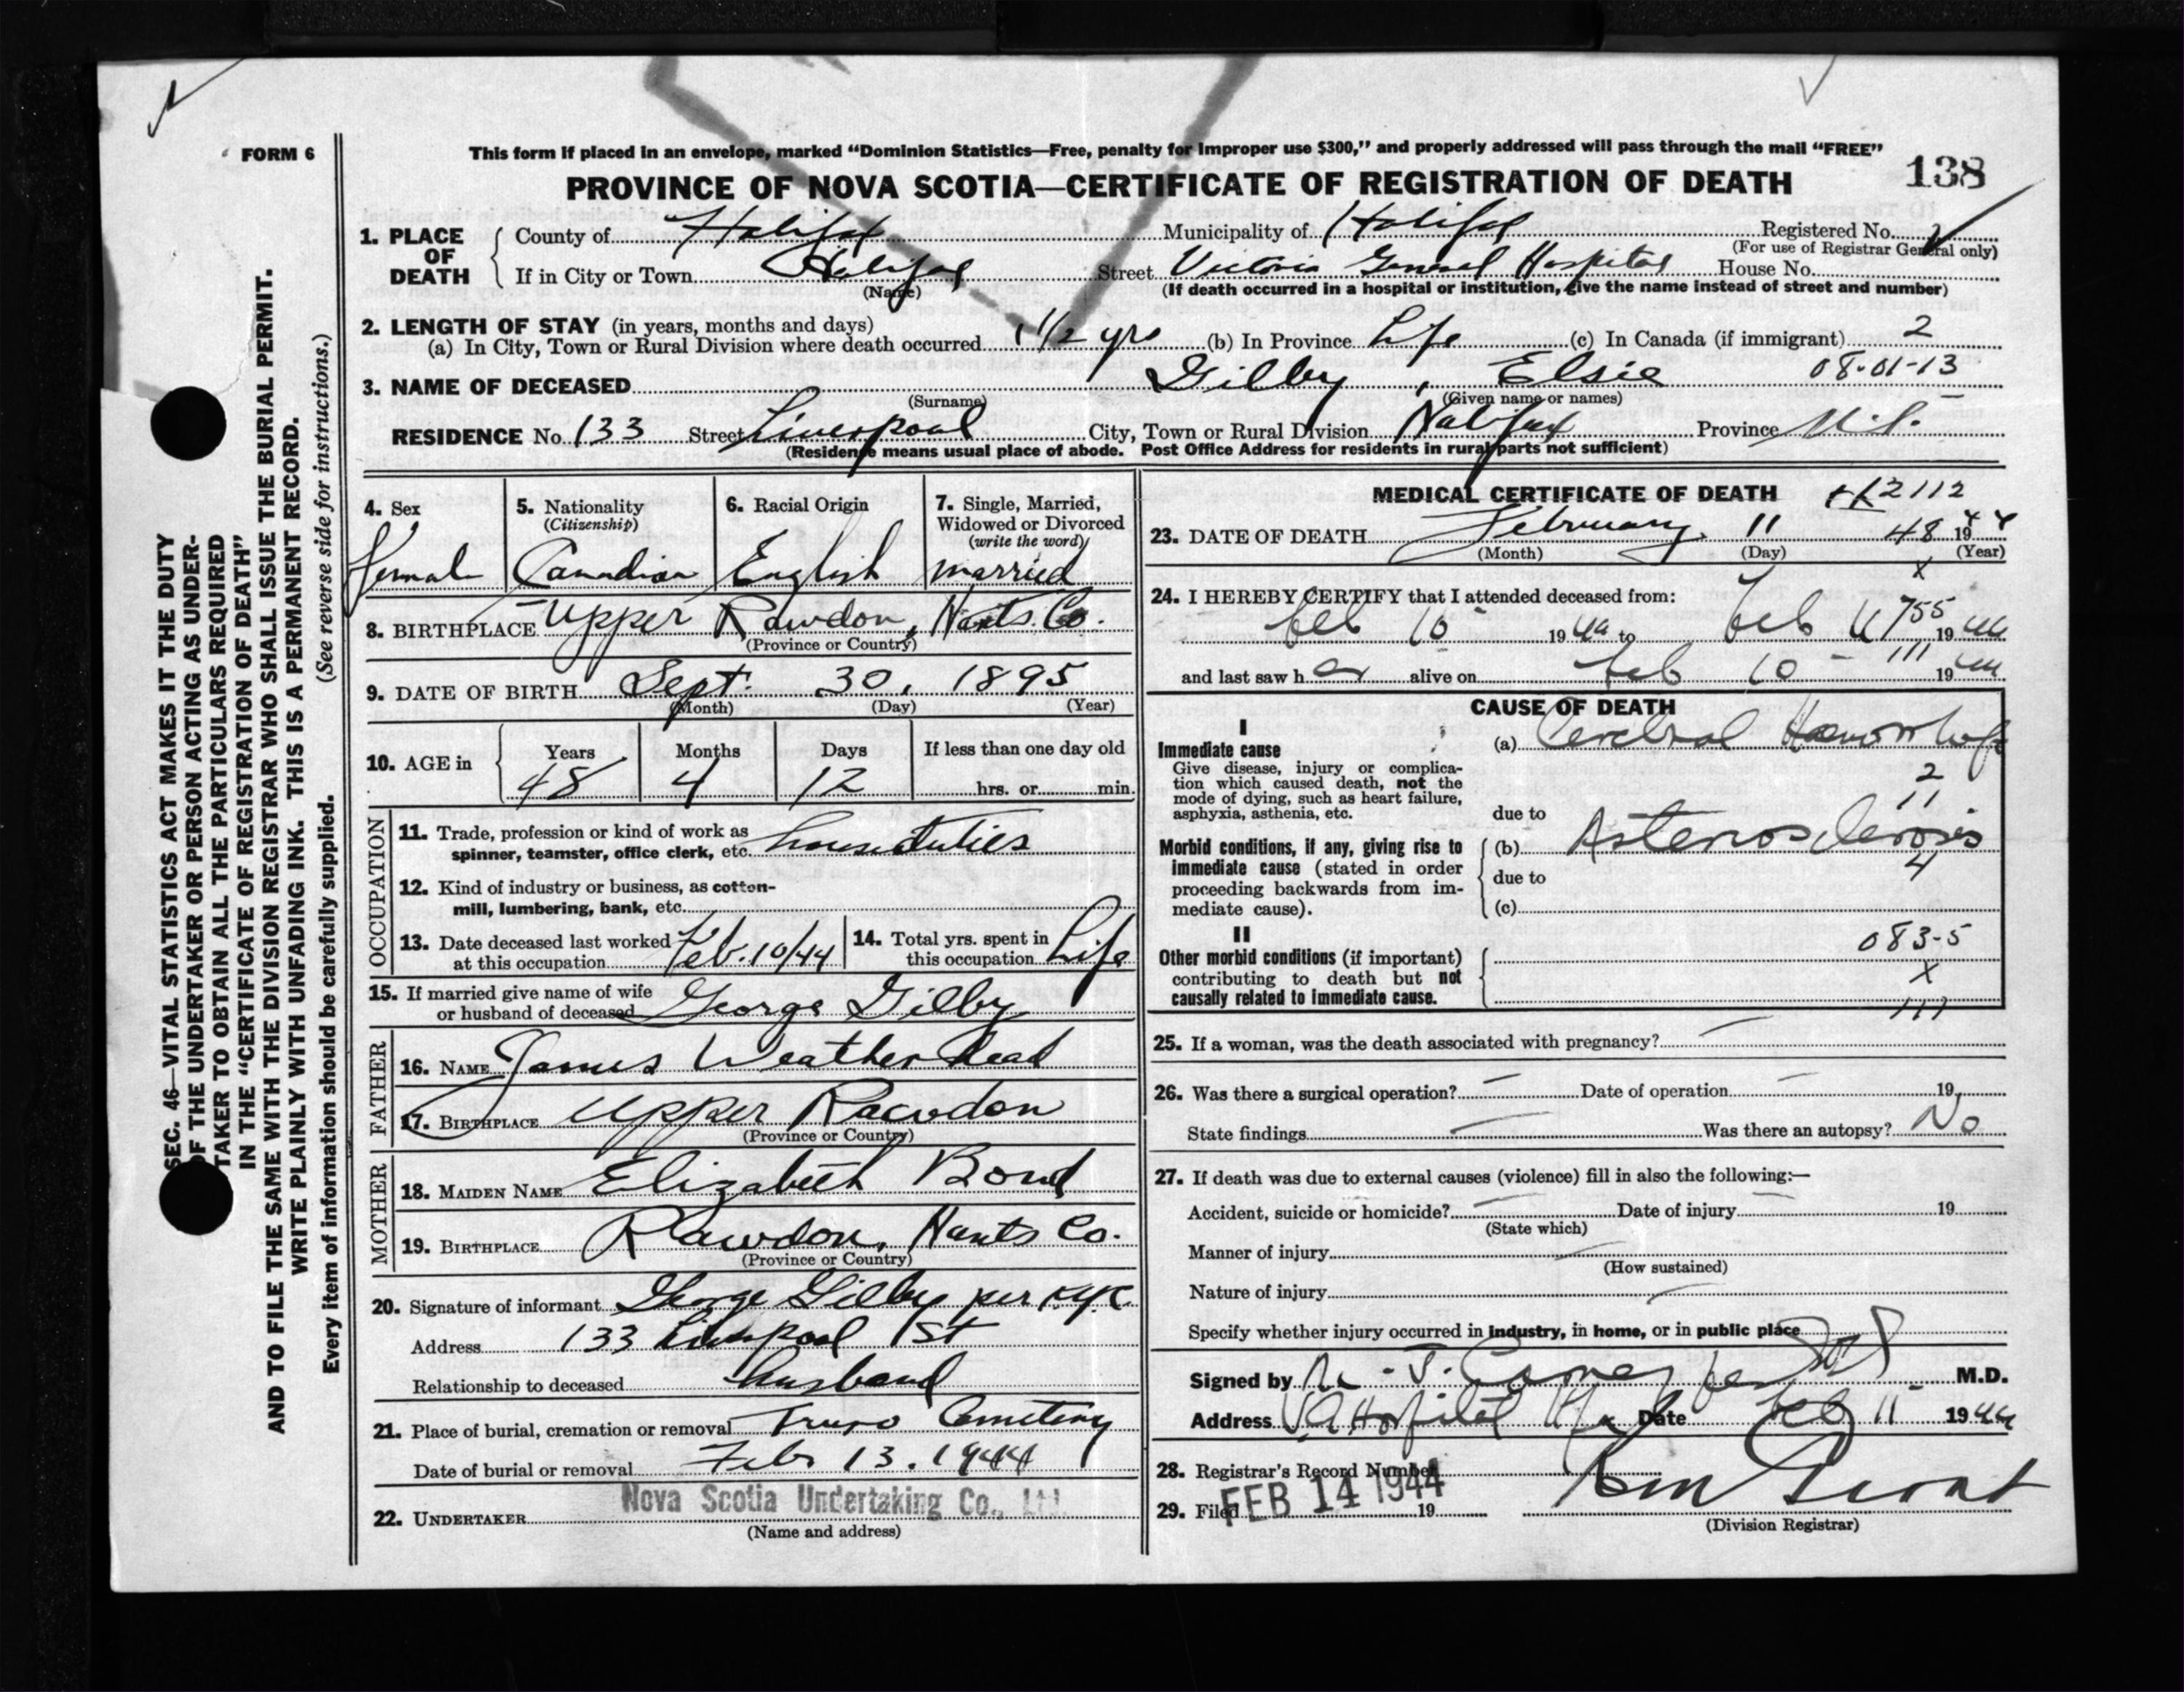 FORM 6
This form if placed in an envelope, marked “Dominion Statistics—Free, penalty for Improper use $300,” and properly addressed will pass through the mail “FREE”
PROVINCE OF NOVA SCOTIA—CERTIFICATE OF REGISTRATION OF DEATH 138
1. PLACE OF DEATH County of Halifax Municipality of Halifax Registered No.
(For use of Registrar General only)
If in City or Town Halifax Street Victoria General Hospital House No.
(Name) (If death occurred in a hospital or institution, give the name instead of street and number)
2. LENGTH OF STAY (in years, months and days)
(a) In City, Town or Rural Division where death occurred 1 1/2 yrs (b) In Province Life (c) In Canada (if immigrant) 2
3. NAME OF DECEASED Gilby, Elsie 08-01-13
(Surname) (Given name or names)
RESIDENCE No. 133 Street Liverpool City, Town or Rural Division Halifax Province N.S.
(Residence means usual place of abode. Post Office Address for residents in rural parts not sufficient)
4. Sex 5. Nationality (Citizenship) 6. Racial Origin 7. Single, Married, Widowed or Divorced (write the word)
female Canadian English married
8. BIRTHPLACE Upper Rawdon, Hants Co.
(Province or Country)
9. DATE OF BIRTH Sept. 30, 1895
(Month) (Day) (Year)
10. AGE in Years Months Days If less than one day old
48 4 12 hrs. or min.
OCCUPATION
11. Trade, profession or kind of work as
spinner, teamster, office clerk, etc. house duties
12. Kind of industry or business, as cotton-
mill, lumbering, bank, etc.
13. Date deceased last worked at this occupation Feb. 10/44 14. Total yrs. spent in this occupation Life
15. If married give name of wife
or husband of deceased George Gilby
FATHER
16. NAME James Weatherhead
17. BIRTHPLACE Upper Rawdon
(Province or Country)
MOTHER
18. MAIDEN NAME Elizabeth Bond
19. BIRTHPLACE Rawdon, Hants Co.
(Province or Country)
20. Signature of informant George Gilby per
Address 133 Liverpool St
Relationship to deceased husband
21. Place of burial, cremation or removal Truro Cemetery
Date of burial or removal Feb 13. 1944
22. UNDERTAKER Nova Scotia Undertaking Co., Ltd.
(Name and address)
MEDICAL CERTIFICATE OF DEATH 2112
23. DATE OF DEATH February 11 48 1944
(Month) (Day) (Year)
X
24. I HEREBY CERTIFY that I attended deceased from:
Feb 10 1944 to Feb 11 755 1944
111
and last saw her alive on Feb 10 1944
CAUSE OF DEATH
I
Immediate cause (a) Cerebral Haemorrhage
Give disease, injury or complica-
tion which caused death, not the
mode of dying, such as heart failure,
asphyxia, asthenia, etc.
2
11
due to
Morbid conditions, if any, giving rise to
immediate cause (stated in order
proceeding backwards from im-
mediate cause).
(b) Arteriosclerosis
4
due to
(c)
II
Other morbid conditions (if important)
contributing to death but not
causally related to immediate cause.
083-5
X
111
25. If a woman, was the death associated with pregnancy? —
26. Was there a surgical operation? — Date of operation — 19
State findings — Was there an autopsy? No
27. If death was due to external causes (violence) fill in also the following:—
Accident, suicide or homicide? — Date of injury — 19
(State which)
Manner of injury —
(How sustained)
Nature of injury —
Specify whether injury occurred in industry, in home, or in public place
Signed by M.D.
Address V.G. Hospital Hfx Date Feb 11 1944
28. Registrar's Record Number
29. Filed FEB 14 1944 19
(Division Registrar)
SEC. 46—VITAL STATISTICS ACT MAKES IT THE DUTY
OF THE UNDERTAKER OR PERSON ACTING AS UNDER-
TAKER TO OBTAIN ALL THE PARTICULARS REQUIRED
IN THE “CERTIFICATE OF REGISTRATION OF DEATH”
AND TO FILE THE SAME WITH THE DIVISION REGISTRAR WHO SHALL ISSUE THE BURIAL PERMIT.
WRITE PLAINLY WITH UNFADING INK. THIS IS A PERMANENT RECORD.
Every item of information should be carefully supplied. (See reverse side for instructions.)